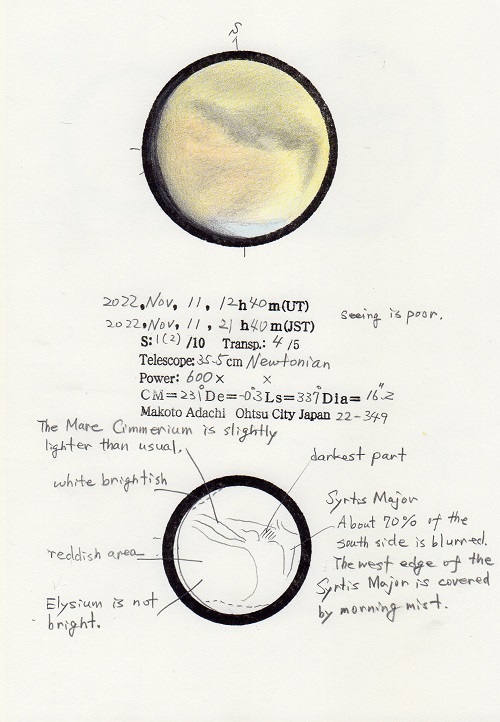 S
2022, Nov, 11, 12h40m(UT)
2022, Nov, 11, 21h40m(JST)
seeing is poor.
S: 1(2) /10 Transp.: 4 /5
Telescope: 35.5cm Newtonian
Power: 600× ×
CM=231° De=-0.°3 Ls=337° Dia= 16."2
Makoto Adachi Ohtsu City Japan 22-349
The Mare Cimmerium is slightly
lighter than usual.
darkest part
white brightish
Syrtis Major
About 70% of the
south side is blurred.
reddish area
The west edge of the
Syrtis Major is covered
by morning mist.
Elysium is not
bright.